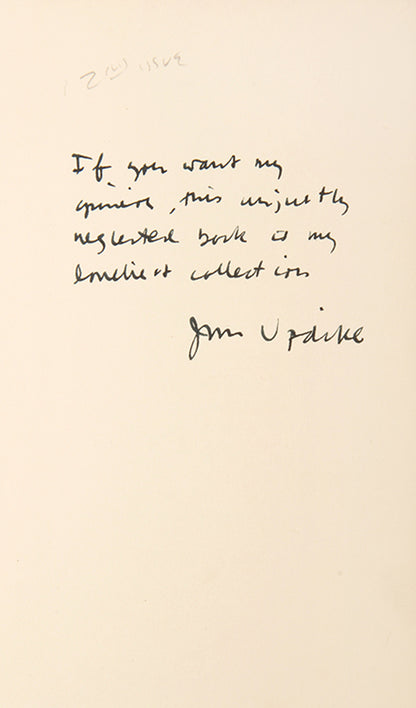 2nd issue
If you want my
opinion, this unjustly
neglected book is my
loneliest collection
John Updike